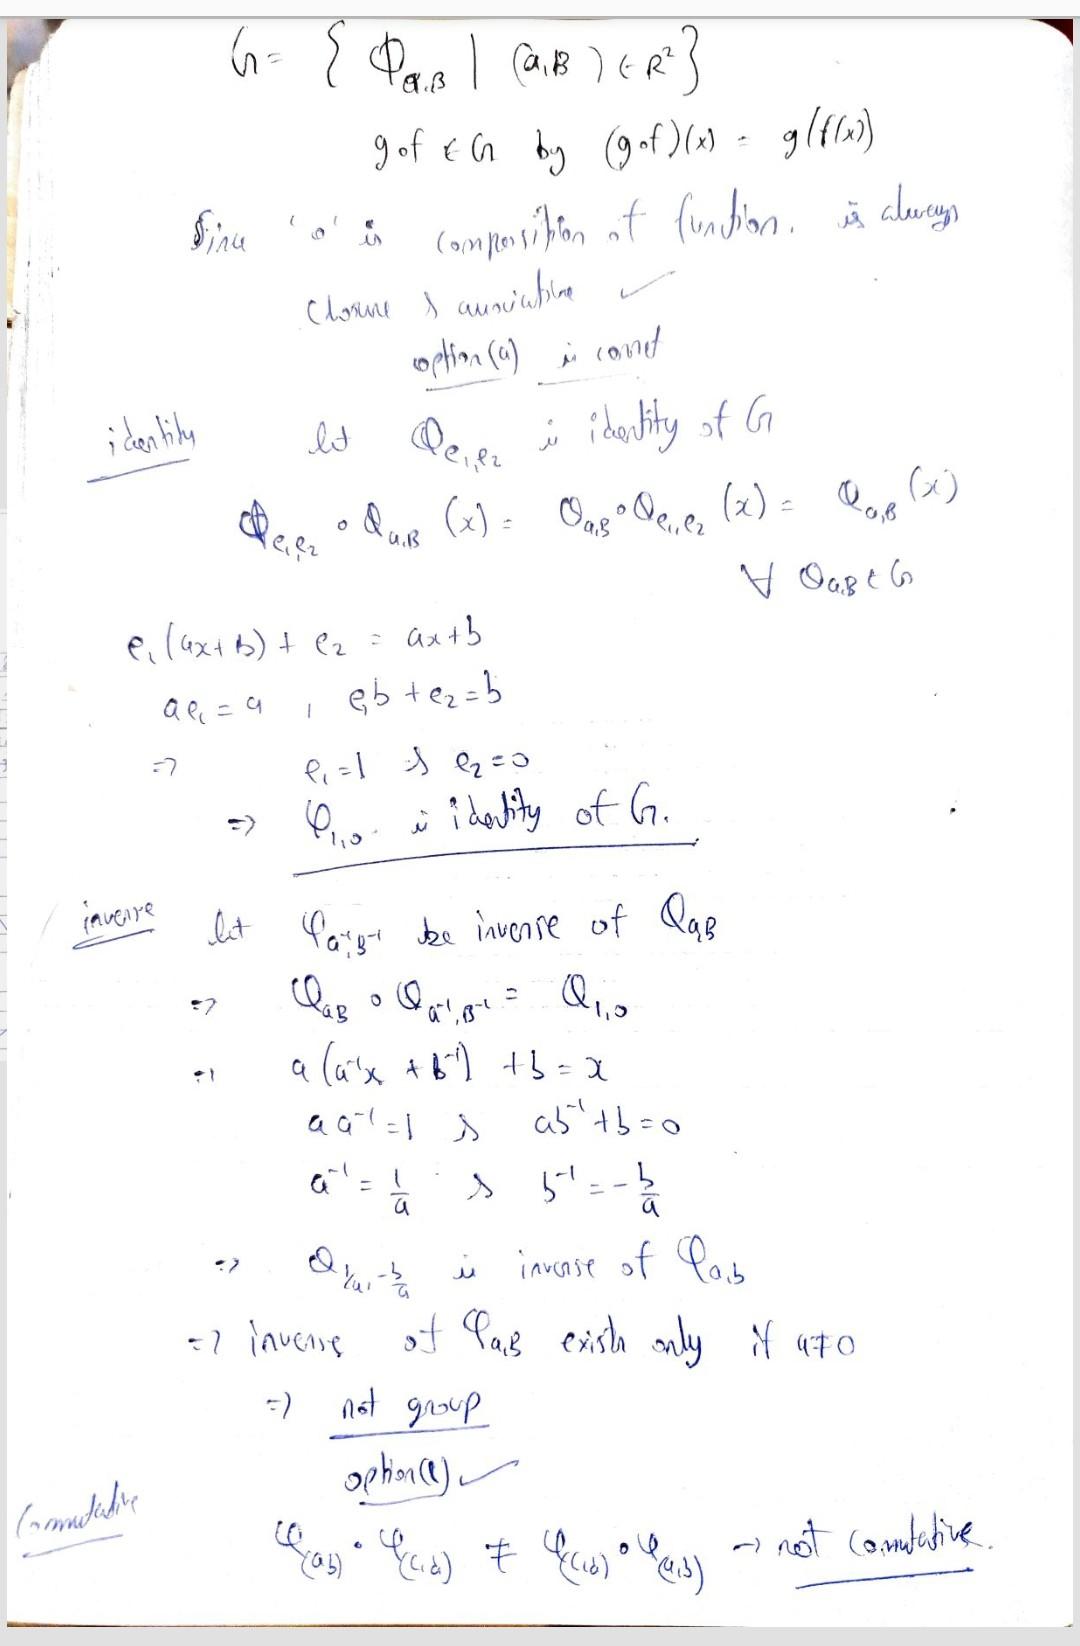 G = { Φa,B | (a,B) ∈ R² }
gof ∈ G by (gof)(x) = g(f(x))
Since 'o' is composition of function. is always
Closure & associative ✓
option (a) is correct
identity let Φe₁,e₂ is identity of G
Φe₁,e₂ ∘ Φa,B (x) = Φa,B ∘ Φe₁,e₂ (x) = Φa,B (x)
∀ Φa,B ∈ G
e₁(ax+b) + e₂ = ax+b
ae₁ = a , e₁b + e₂ = b
⇒ e₁ = 1 & e₂ = 0
⇒ φ1,0 is identity of G.
inverse let φa⁻¹,B⁻¹ be inverse of φa,B
⇒ φaB ∘ φa⁻¹,B⁻¹ = φ1,0
⇒ a(a⁻¹x + b⁻¹) + b = x
aa⁻¹ = 1 & ab⁻¹ + b = 0
a⁻¹ = 1/a & b⁻¹ = -b/a
⇒ φ1/a,-b/a is inverse of φa,b
⇒ inverse of φa,B exists only if a≠0
⇒ not group
option ✓
Commutative
φ(a,b) ∘ φ(c,d) ≠ φ(c,d) ∘ φ(a,b) → not commutative.